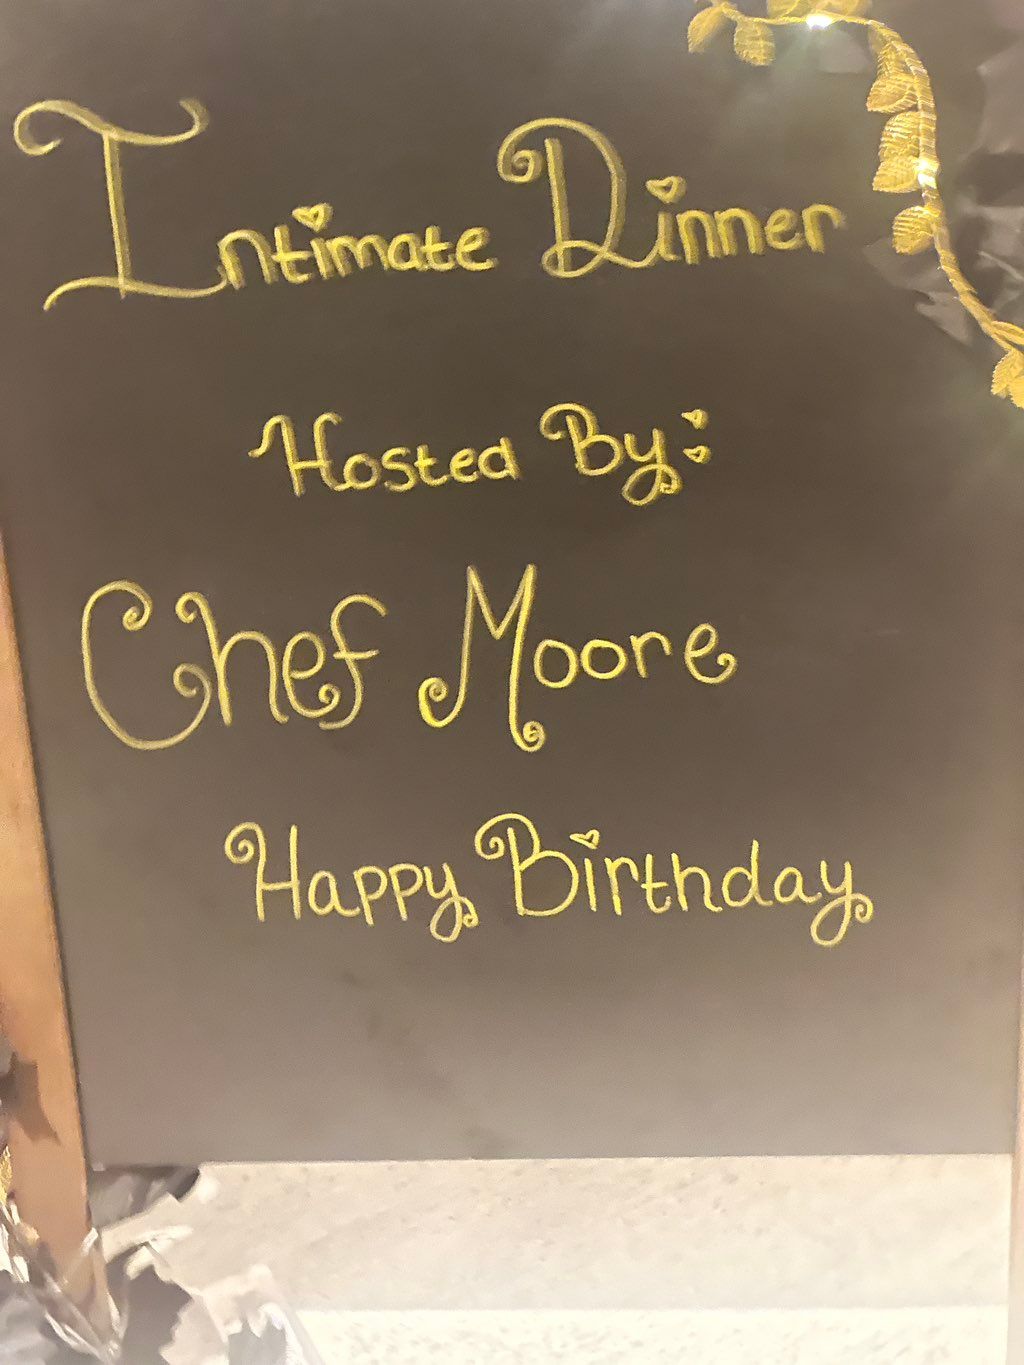 Intimate Dinner
Hosted By:
Chef Moore
Happy Birthday